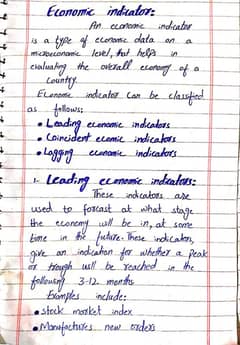 Economic indicator:
An economic indicator
is a type of economic data on a
microeconomic level, that helps in
evaluating the overall economy of a
country.
Economic indicator can be classfied
as follows:
• Leading economic indicators
• Coincident econmic indicators
• Lagging economic indicators
1. Leading economic indicators:
These indicators are
used to forcast at what stage
the economy will be in, at some
time in the future. These indicators,
give an indication for whether a peak
or trough will be reached in the
following 3-12 months
Examples include:
• stock market index
• Manufactures new orders